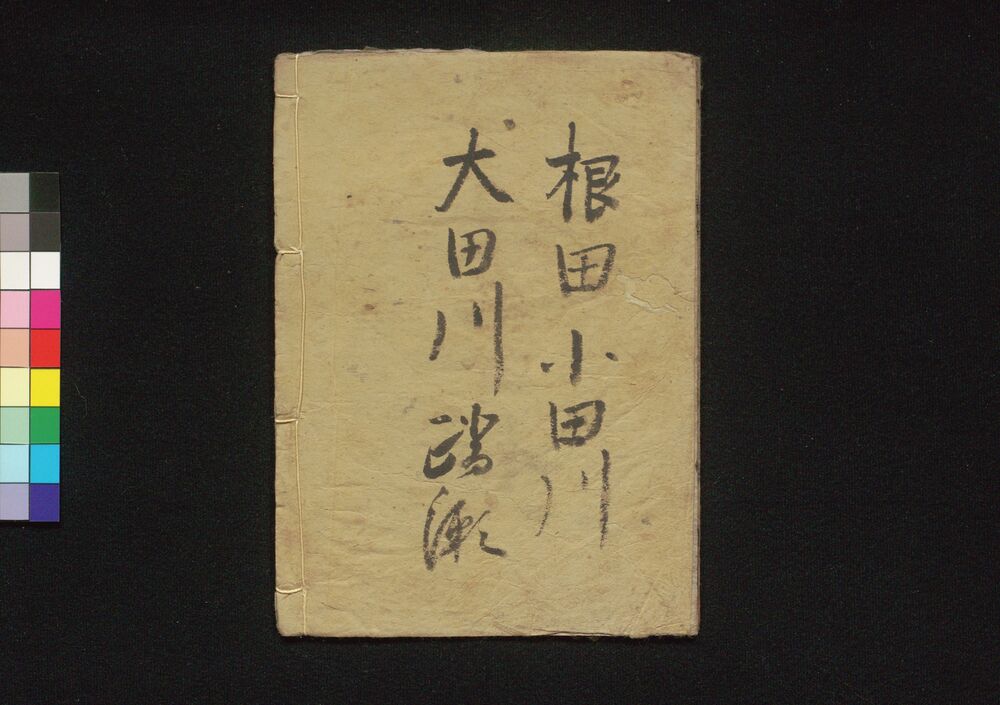 根田小田川
大田川踏瀬